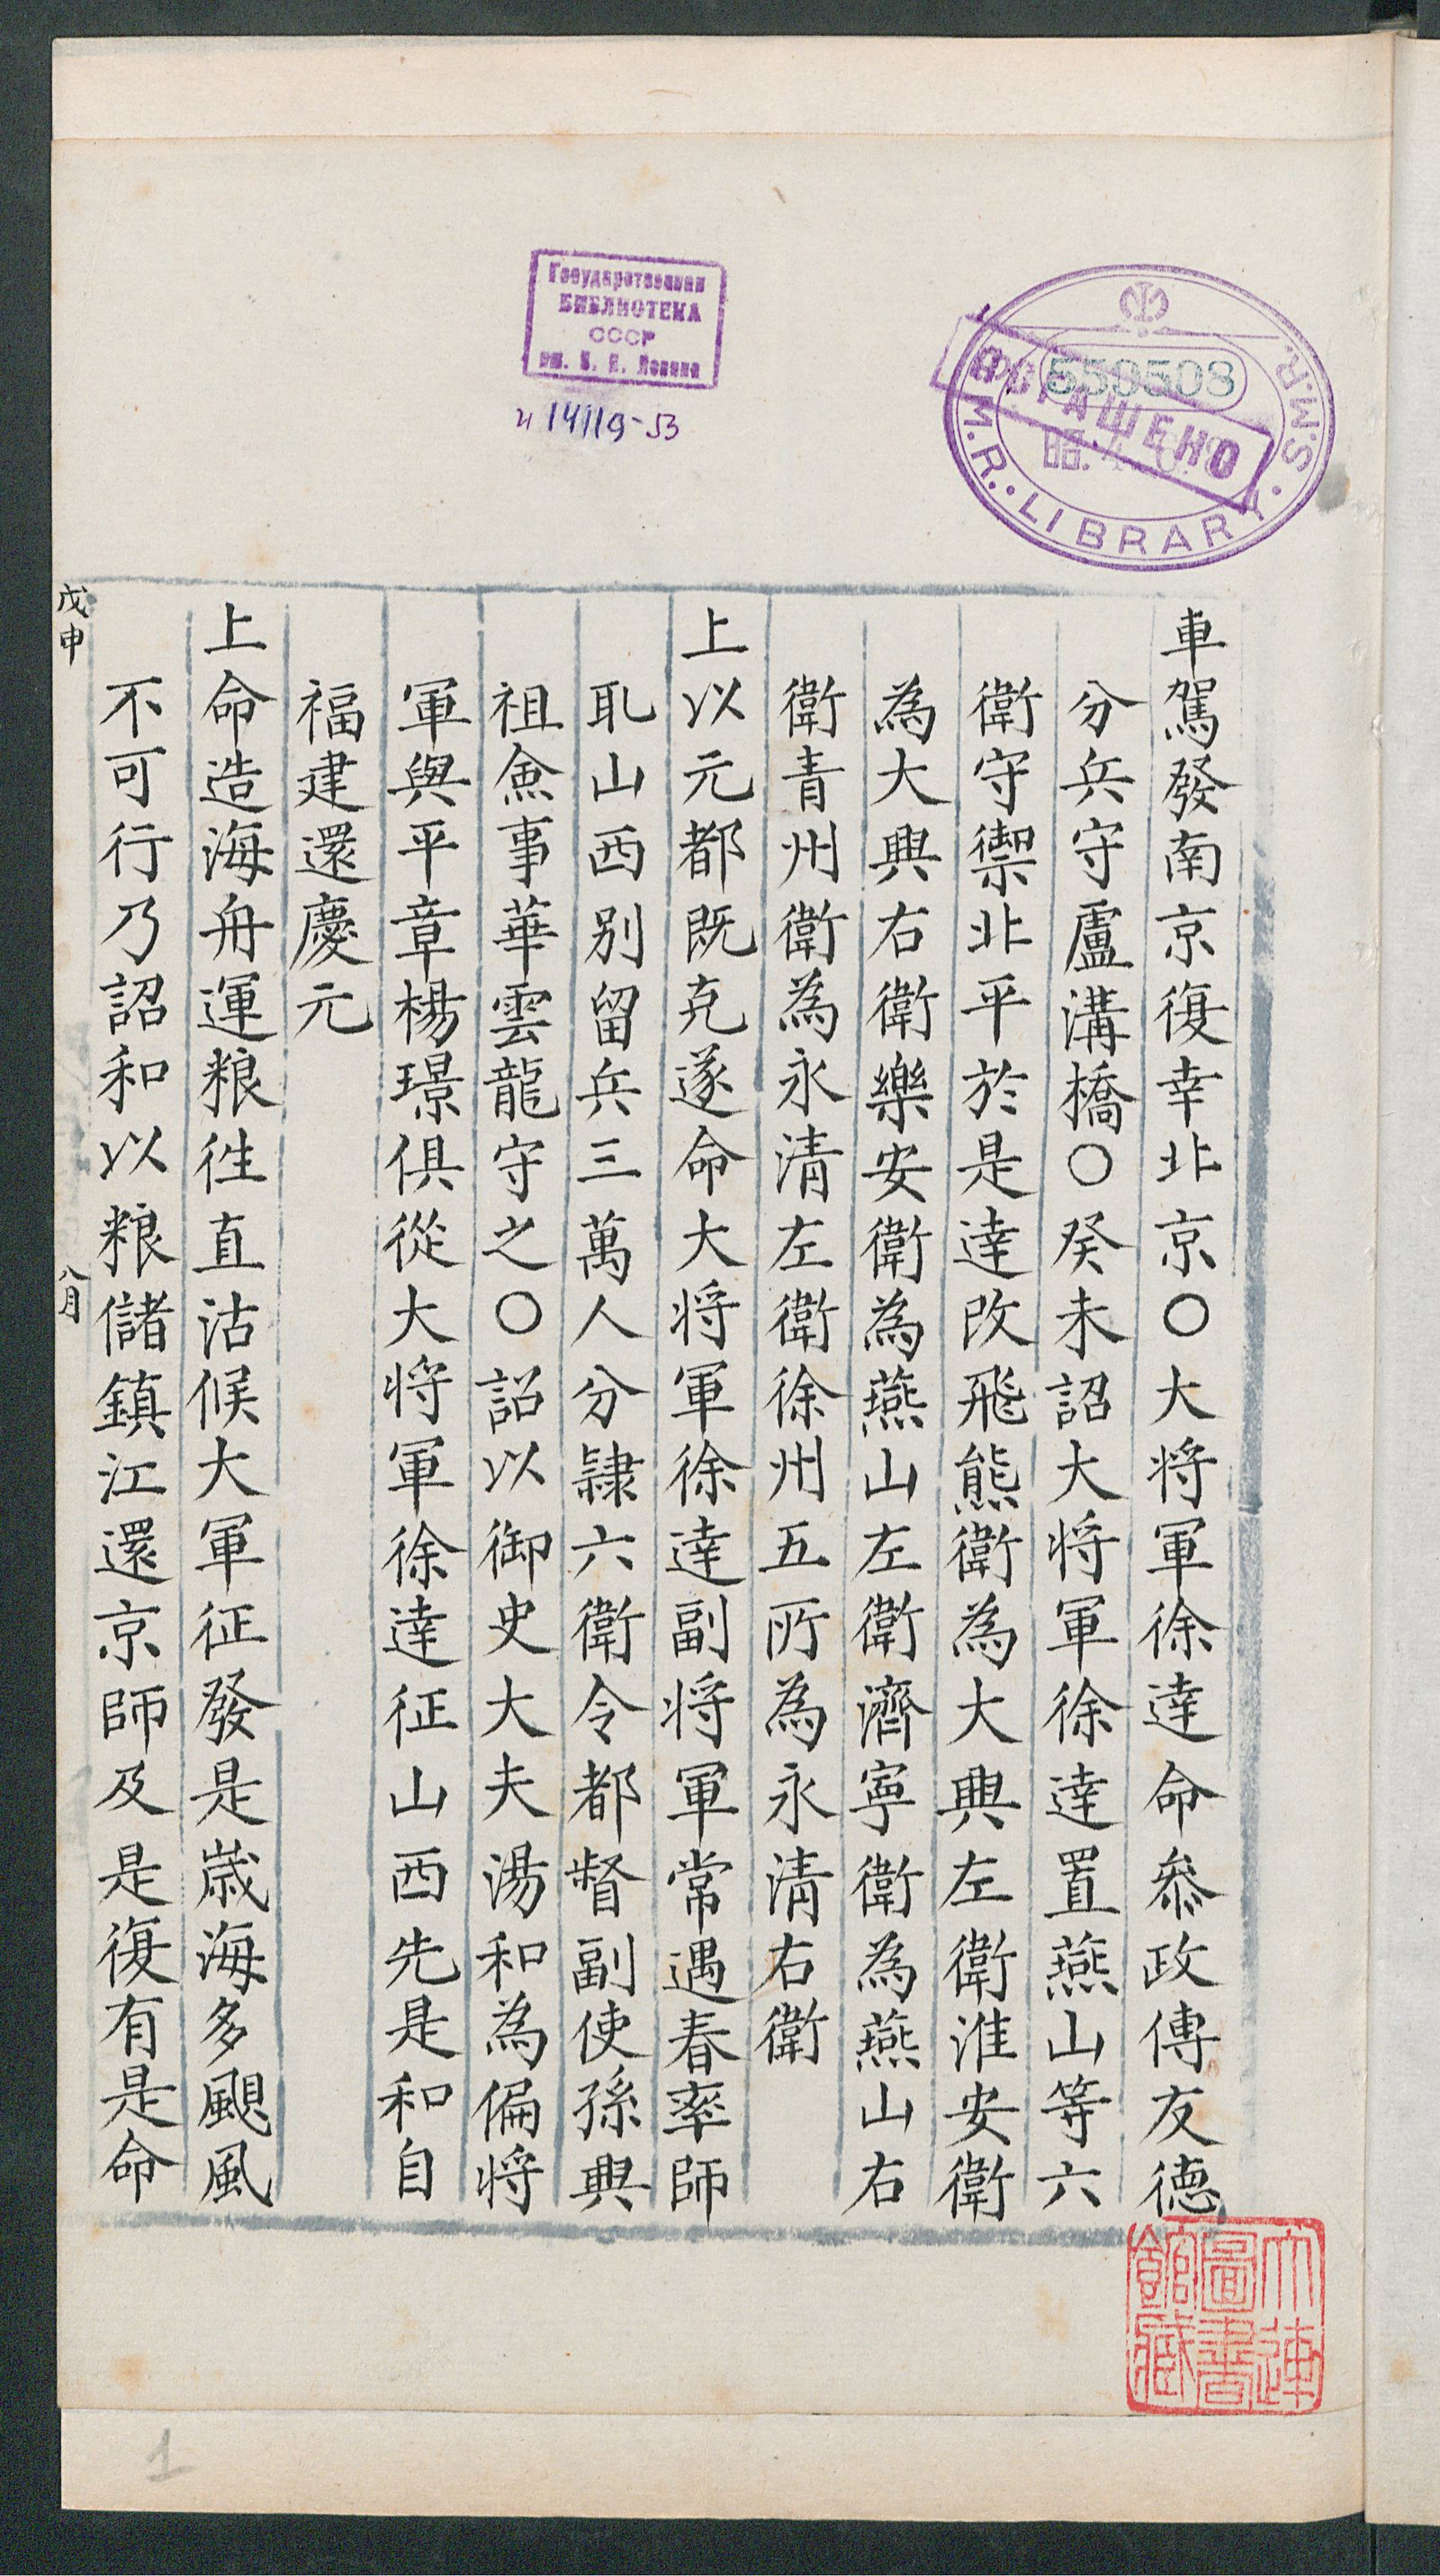 車駕發南京復幸北京〇大将軍徐逹命叅政傅友德
分兵守盧溝橋〇癸未詔大将軍徐逹置燕山等六
衛守禦北平於是逹改飛熊衛為大興左衛淮安衛
為大興右衛樂安衛為燕山左衛濟寧衛為燕山右
衛青州衛為永清左衛徐州五所為永清右衛
上以元都既克遂命大将軍徐逹副将軍常遇春率師
取山西别留兵三萬人分隸六衛令都督副使孫興
祖僉事華雲龍守之〇詔以御史大夫湯和為偏将
軍與平章楊璟俱從大将軍徐逹征山西先是和自
福建還慶元
上命造海舟運粮徃直沽候大軍征發是歲海多颶風
不可行乃詔和以粮儲鎮江還京師及是復有是命
戊申
八月
Государственная
БИБЛИОТЕКА
СССР
им. В. И. Ленина
и 14119-53
550508
ПОГАШЕНО
S.M.R. LIBRARY
大連
圖書
館藏
1